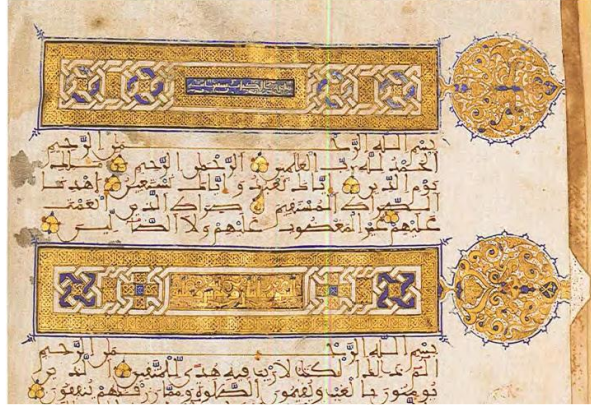 فاتحة الكتاب سبع آيات
بسم الله الرحمن الرحيم
الحمد لله رب العالمين الرحمن الرحيم ملك
يوم الدين إياك نعبد وإياك نستعين اهدنا
الصراط المستقيم صراط الذين أنعمت
عليهم غير المغضوب عليهم ولا الضالين
بسم الله الرحمن الرحيم
الم ذلك الكتاب لا ريب فيه هدى للمتقين الذين
يومنون بالغيب ويقيمون الصلوة ومما رزقنهم ينفقون